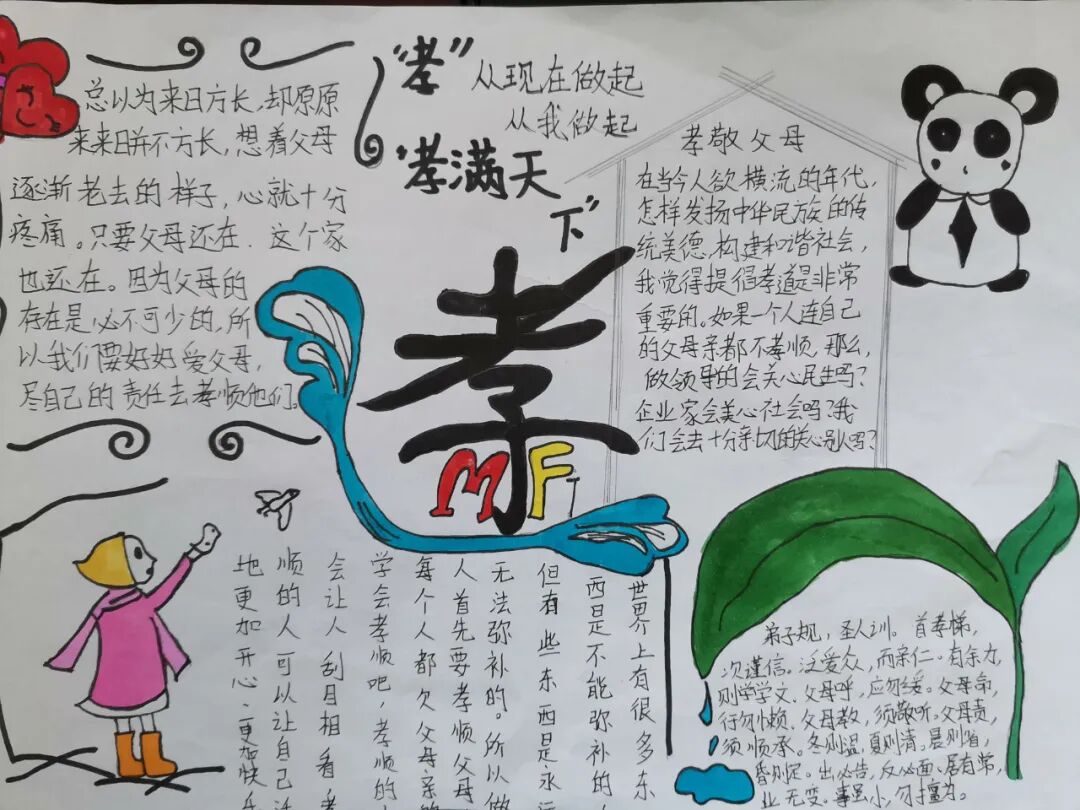 总以为来日方长,却原原
来来日并不方长,想着父母
逐渐老去的样子,心就十分
疼痛。只要父母还在.这个家
也还在。因为父母的
存在是必不可少的,所
以我们要好好爱父母,
尽自己的责任去孝顺他们。
"孝"从现在做起
从我做起
"孝满天
下"
孝
MF
孝敬父母
在当今人欲横流的年代,
怎样发扬中华民族的传
统美德,构建和谐社会,
我觉得提倡孝道是非常
重要的。如果一个人连自己
的父母亲都不孝顺,那么,
做领导的会关心民生吗?
企业家会关心社会吗?我
们会去十分亲切的关心别人吗?
世界上有很多东
西是不能弥补的,
但有些东西是永
无法弥补的。所以做
人首先要孝顺父母
每个人都欠父母亲
学会孝顺吧,孝顺的
会让人刮目相看,孝
顺的人可以让自己
地更加开心、更加快
弟子规,圣人训。首孝悌,
次谨信。泛爱众,而亲仁。有余力,
则学文、父母呼,应勿缓。父母命,
行勿懒、父母教,须敬听。父母责,
须顺承。冬则温,夏则清。晨则省,
昏则定。出必告,反必面、居有常,
业无变。事虽小,勿擅为。